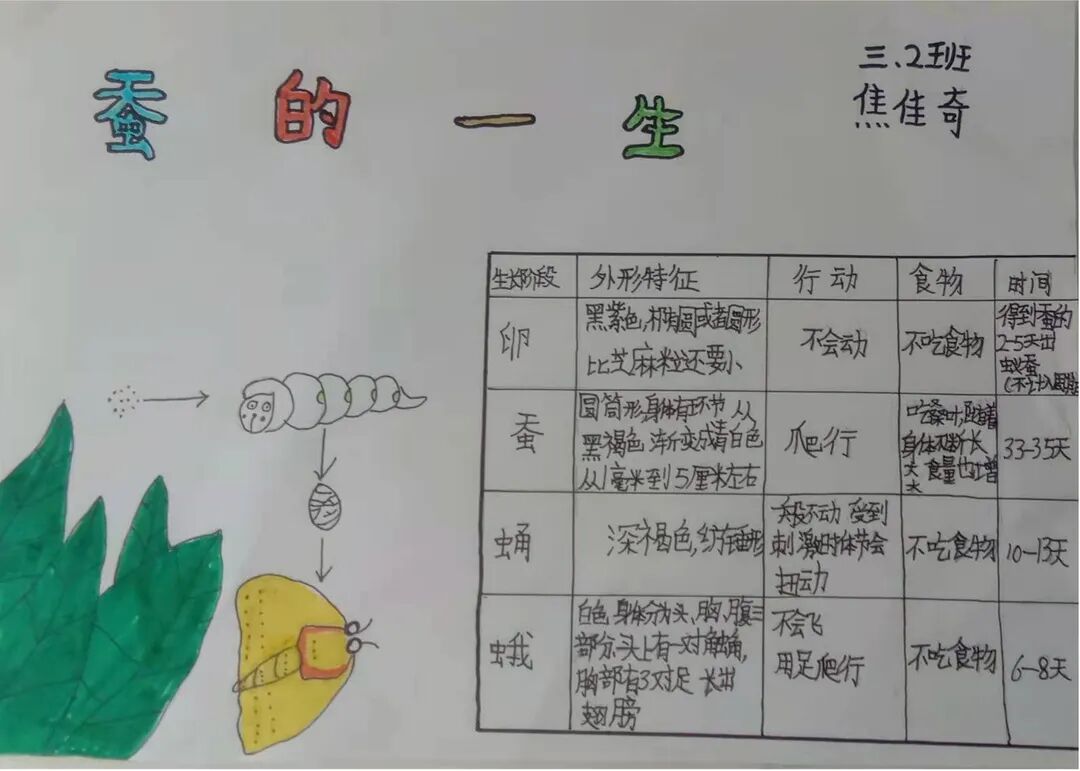 蚕的一生
三、2班
焦佳奇
生长阶段 外形特征 行动 食物 时间
卵
黑紫色,椭圆或者圆形
比芝麻粒还要小
不会动
不吃食物
得到蚕的
2-5天出
蚁蚕
蚕
圆筒形,身体有环节,从
黑褐色,渐变成青白色
从1毫米到5厘米左右
爬行
吃桑叶,随着
身体不断长
大食量也增
大
33-35天
蛹
深褐色,纺锤形
一般不动 受到
刺激时体节会
扭动
不吃食物
10-13天
蛾
白色,身体分为头,胸,腹三
部分,头上有一对触角,
胸部有3对足 长出
翅膀
不会飞
用足爬行
不吃食物
6-8天